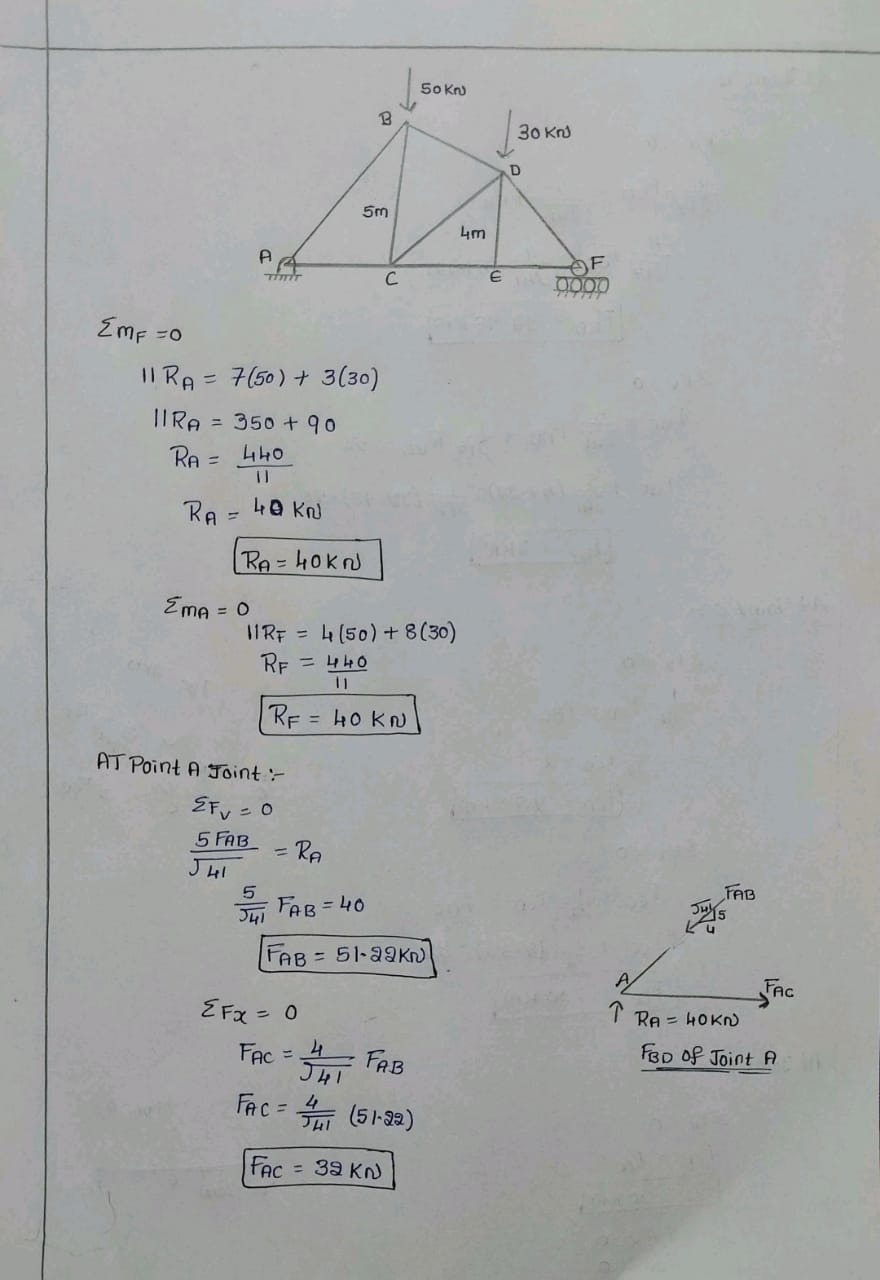 50 KN
B
30 KN
D
5m
4m
A
C
E
F
ΣmF = 0
11 RA = 7(50) + 3(30)
11RA = 350 + 90
RA = 440/11
RA = 40 KN
RA = 40 KN
ΣmA = 0
11RF = 4(50) + 8(30)
RF = 440/11
RF = 40 KN
AT Point A Joint :-
ΣFV = 0
5 FAB/√41 = RA
5/√41 FAB = 40
FAB = 51.22KN
ΣFx = 0
FAC = 4/√41 FAB
FAC = 4/√41 (51.22)
FAC = 32 KN
FAB
√41
5
4
A
FAC
↑ RA = 40KN
FBD of Joint A